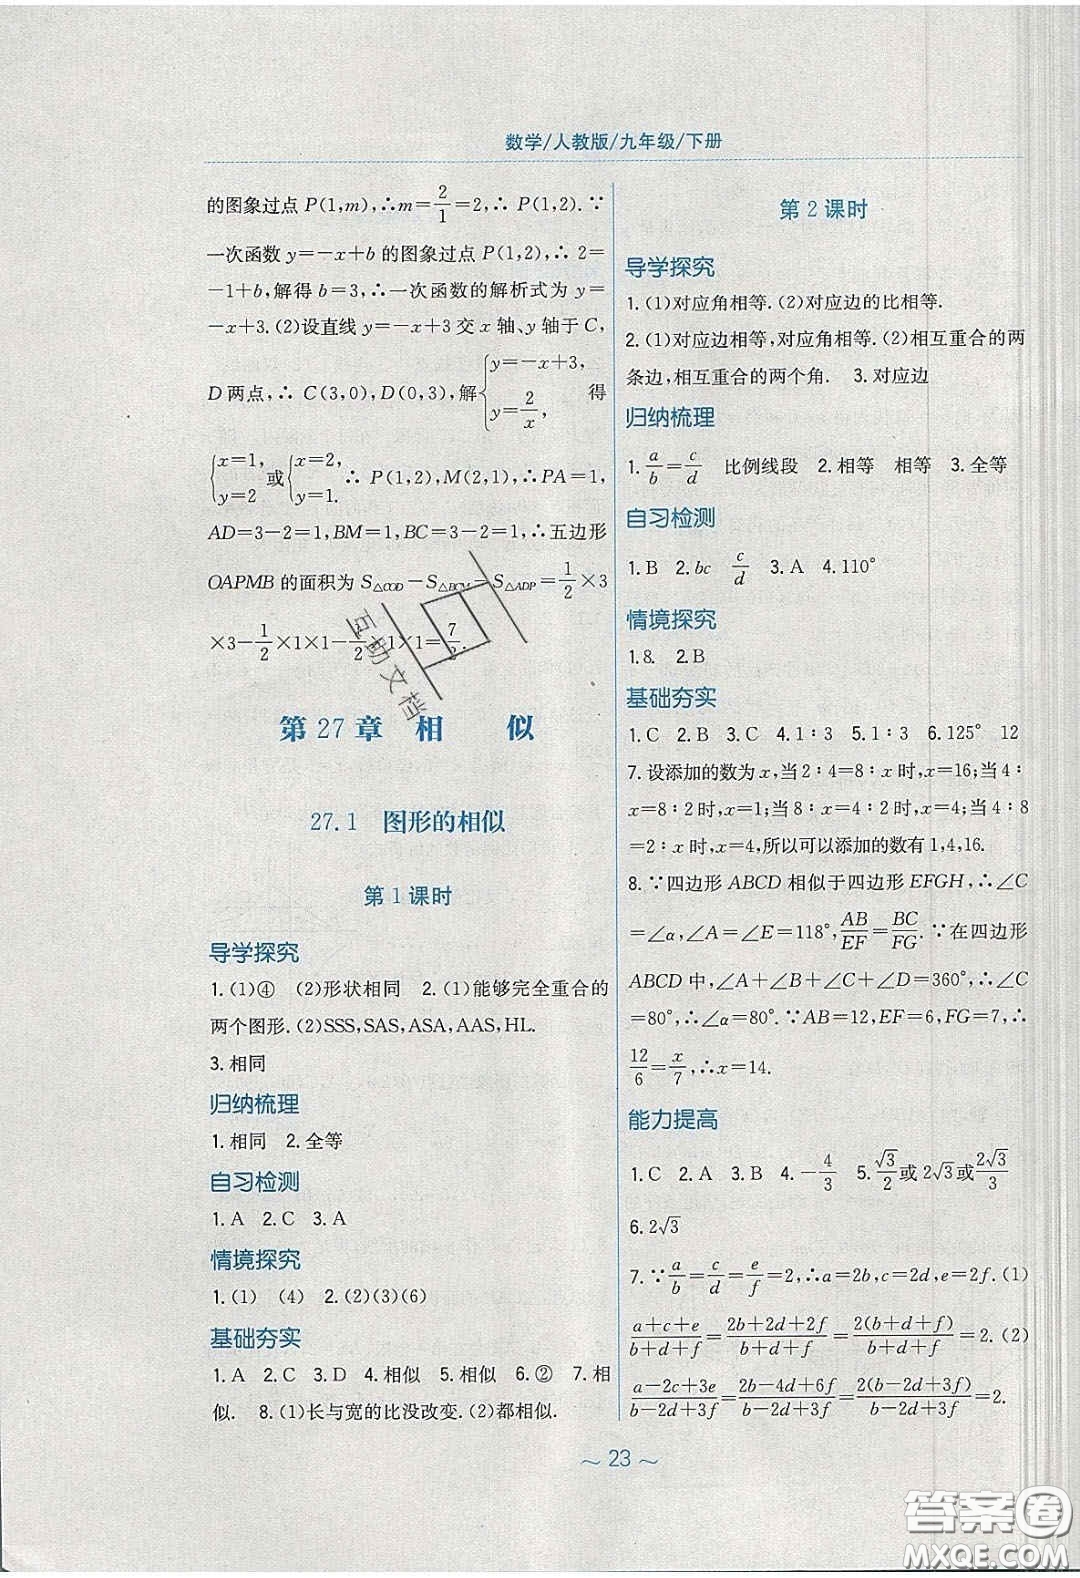 数学/人教版/九年级/下册
的图象过点 P(1,m),∴m=2/1=2,∴ P(1,2).∵
一次函数 y=-x+b 的图象过点 P(1,2),∴ 2=
-1+b,解得 b=3,∴一次函数的解析式为 y=
-x+3.(2)设直线 y=-x+3 交 x 轴、y 轴于 C,
D 两点,∴ C(3,0),D(0,3),解{y=-x+3, y=2/x, 得
{x=1, y=2 或{x=2, y=1. ∴ P(1,2),M(2,1),∴PA=1,
AD=3-2=1,BM=1,BC=3-2=1,∴五边形
OAPMB 的面积为 S△COD-S△BCM-S△ADP=1/2×3
×3-1/2×1×1-1/2×1×1=7/2.
第 27 章 相 似
27.1 图形的相似
第 1 课时
导学探究
1.(1)④ (2)形状相同 2.(1)能够完全重合的
两个图形.(2)SSS,SAS,ASA,AAS,HL.
3.相同
归纳梳理
1.相同 2.全等
自习检测
1.A 2.C 3.A
情境探究
1.(1) (4) 2.(2)(3)(6)
基础夯实
1.A 2.C 3.D 4.相似 5.相似 6.② 7.相
似. 8.(1)长与宽的比没改变.(2)都相似.
第 2 课时
导学探究
1.(1)对应角相等.(2)对应边的比相等.
2.(1)对应边相等,对应角相等.(2)相互重合的两
条边,相互重合的两个角. 3.对应边
归纳梳理
1.a/b=c/d 比例线段 2.相等 相等 3.全等
自习检测
1.B 2.bc c/d 3.A 4.110°
情境探究
1.8. 2.B
基础夯实
1.C 2.B 3.C 4.1∶3 5.1∶3 6.125° 12
7.设添加的数为 x,当 2∶4=8∶x 时,x=16;当 4∶
x=8∶2 时,x=1;当 8∶x=4∶2 时,x=4;当 4∶8
=2∶x 时,x=4,所以可以添加的数有 1,4,16.
8.∵四边形 ABCD 相似于四边形 EFGH,∴∠C
=∠α,∠A=∠E=118°,AB/EF=BC/FG.∵在四边形
ABCD 中,∠A+∠B+∠C+∠D=360°,∴∠C
=80°,∴∠α=80°.∵AB=12,EF=6,FG=7,∴
12/6=x/7,∴x=14.
能力提高
1.C 2.A 3.B 4.-4/3 5.√3/2或 2√3或2√3/3
6.2√3
7.∵a/b=c/d=e/f=2,∴a=2b,c=2d,e=2f.(1)
(a+c+e)/(b+d+f)=(2b+2d+2f)/(b+d+f)=2(b+d+f)/(b+d+f)=2.(2)
(a-2c+3e)/(b-2d+3f)=(2b-4d+6f)/(b-2d+3f)=2(b-2d+3f)/(b-2d+3f)=2.
～ 23 ～
互助文档
答案卷
MXQE.COM